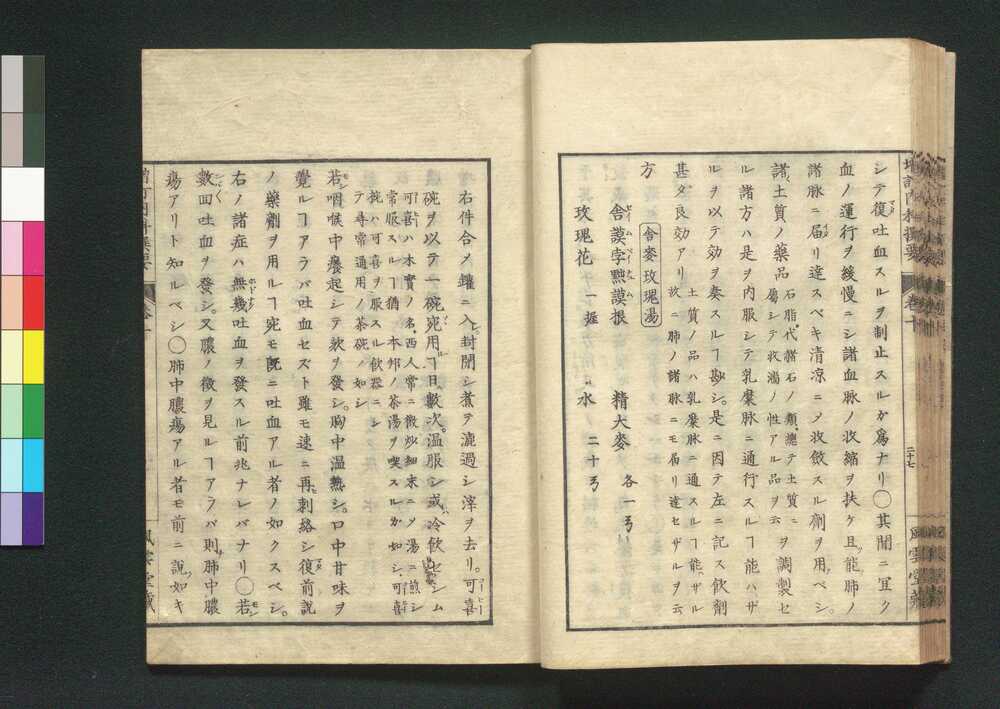 増訂内科撰要 巻十 二十七 風雲堂蔵
シテ復吐血スルヲ制止スルカ爲ナリ〇其間ニ宜ク
血ノ運行ヲ緩慢ニシ諸血脉ノ收縮ヲ扶ケ且ツ能肺ノ
諸脉ニ届リ達スベキ清凉ニメ收斂スル劑ヲ用ベシ。
諸土質ノ藥品 石脂代赭石ノ類總テ土質ニ
屬シテ收濇ノ性アル品ヲ云 ヲ調製セ
ル諸方ハ是ヲ内服シテ乳糜脉ニ通行スルヿ能ハザ
ルヲ以テ効ヲ奏スルヿ尠シ。是ニ因テ左ニ記ス飲劑
甚タ良効アリ 土質ノ品ハ乳糜脉ニ通スルヿ能ザル
故ニ肺ノ諸脉ニモ届リ達セザルヲ云
方 舎麥玫瑰湯
舎謨孛黙謨根 精大麥 各一弓
玫瑰花 一握 水 二十弓
右件合メ鑵ニ入封閉シ煮テ漉過シ滓ヲ去リ。可喜
碗ヲ以テ一碗宛用ヿ日數次。温服シ或冷飲セシム
可喜ハ木實ノ名。西人常ニ微炒細末ニメ湯ニ煎シ
常服スルヿ猶本邦ノ茶湯ヲ喫スルカ如シ。可喜
碗ハ可喜ヲ服スル飲器ニシ
テ尋常通用ノ茶碗ノ如シ
若咽喉中癢起シテ欬ヲ發シ。胸中温熱シ。口中甘味ヲ
覺ルヿアラバ吐血セズト雖モ速ニ再刺絡シ復前説
ノ藥劑ヲ用ルヿ宛モ既ニ吐血アル者ノ如クスベシ。
右ノ諸症ハ無幾吐血ヲ發スル前兆ナレバナリ〇若
數回吐血ヲ發シ。又膿ノ徴ヲ見ルヿアラバ則肺中膿
瘍アリト知ルベシ〇肺中膿瘍アル者モ前ニ説如キ